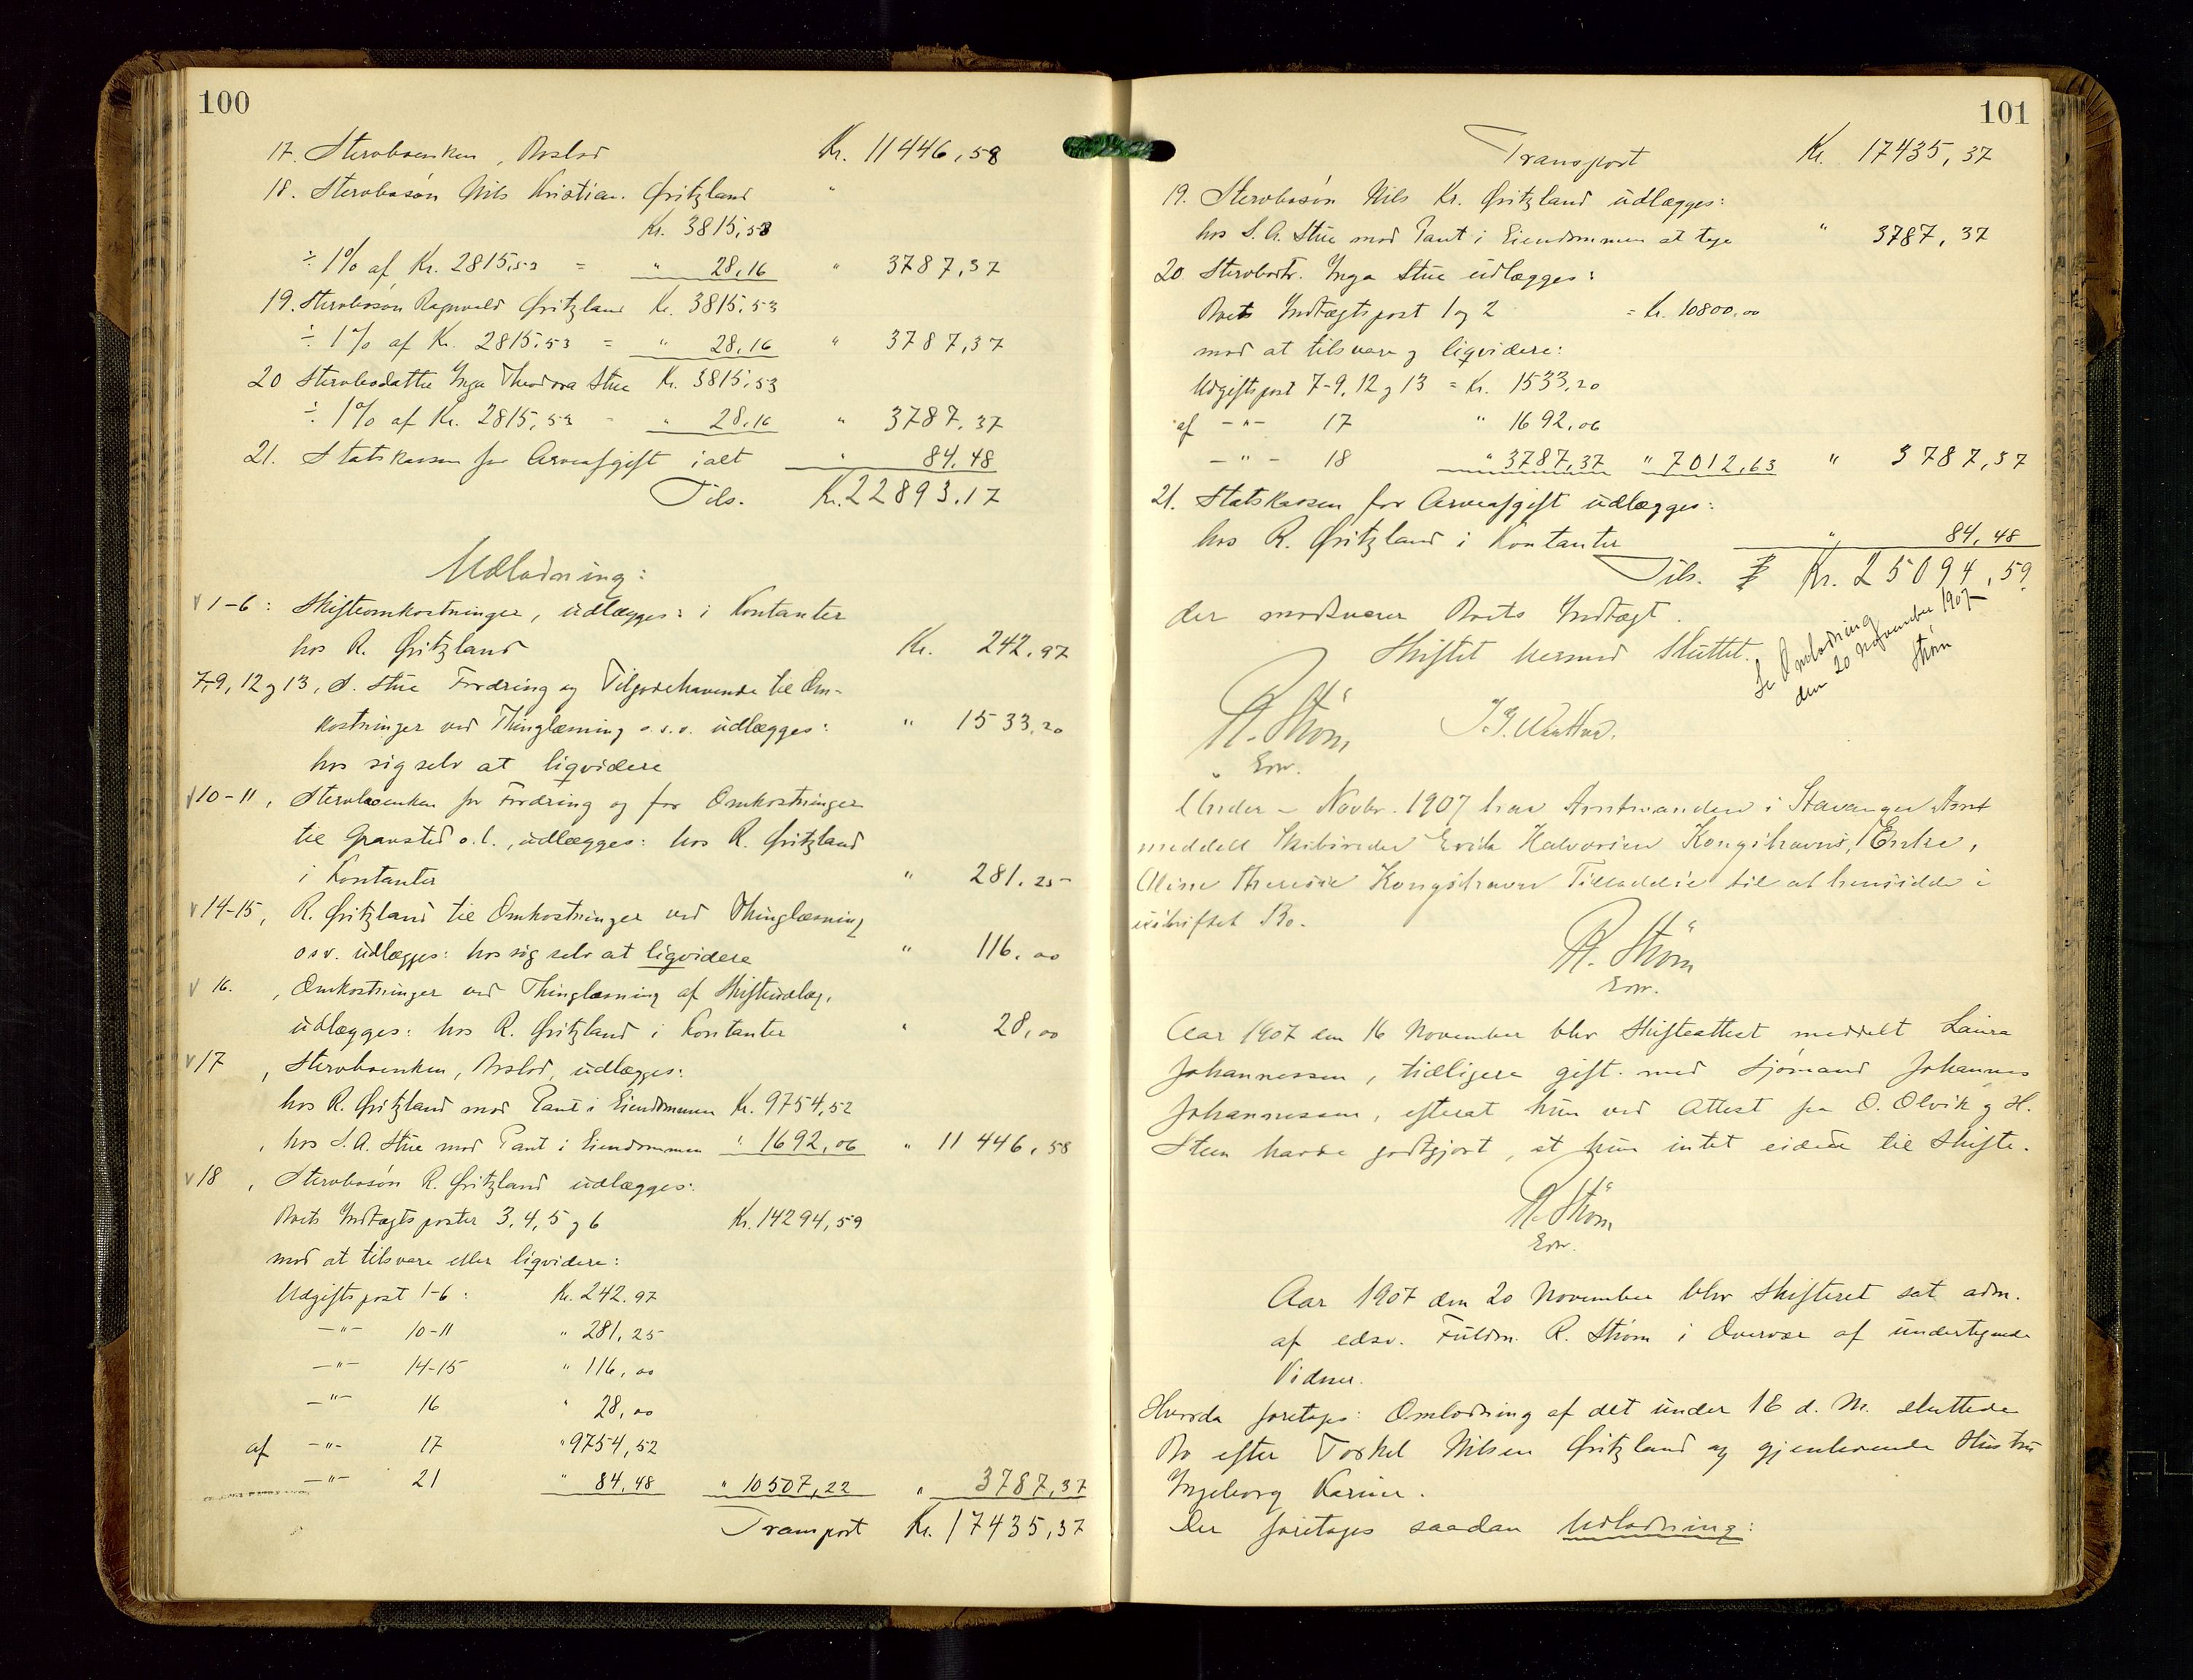 100
17. Sterboenken, Boslod Kr. 11446,58
18. Sterbosøn Nils Kristian Øritzland "
Kr. 3815,53
÷ 1% af Kr. 2815,53 = " 28,16 " 3787,37
19. Sterbosøn Ragnvald Øritzland Kr. 3815,53
÷ 1% af Kr. 2815,53 = " 28,16 " 3787,37
20 Sterbodatter Inga Theodora Stue Kr. 3815,53
÷ 1% af Kr. 2815,53 - " 28,16 " 3787,37
21. Statskassen for Arveafgift ialt " 84,48
Tils. Kr. 22893.17
Udlodning:
√ 1-6: Skifteomkostninger, udlægges: i Kontanter
hos R. Øritzland Kr. 242,97
7-9, 12 og 13, S. Stue Fordring og Tilgodehavende til Om-
kostninger ved Thinglæsning o.s.v. udlægges: " 1533,20
hos sig selv at liqvidere
√ 10-11, Sterboenken for Fordring og for Omkostninger
til Gravsted o.l., udlægges: hos R. Øritzland
i Kontanter " 281,25
√ 14-15, R. Øritzland til Omkostninger ved Thinglæsning
osv. udlægges: hos sig selv at liqvidere " 116,00
√ 16. , Omkostninger ved Thinglæsning af Skifteudlæg,
udlægges: hos R. Øritzland i Kontanter " 28,00
√ 17 , Sterboenken, Boslod, udlægges:
hos R. Øritzland mod Pant i Eiendommen Kr. 9754,52
, hos S. A. Stue mod Pant i Eiendommen " 1692,06 " 11446,58
√ 18 , Sterbosøn R. Øritzland udlægges:
Boets Indtægtsposter 3, 4, 5 og 6 Kr. 14294,59
mod at tilsvare eller liqvidere:
Udgiftspost 1-6: Kr. 242.97
—"— 10-11 " 281,25
—"— 14-15 " 116,00
—"— 16 " 28,00
af —"— 17 " 9754,52
—"— 21 " 84,48 " 10507,22 " 3787,37
Transport Kr. 17435,37
101
Transport Kr. 17435,37
19. Sterbosøn Nils Kr. Øritzland udlægges:
hos S. A. Stue mod Pant i Eiendommen at tage " 3787,37
20. Sterbodtr. Inga Stue udlægges:
Boets Indtægtspost 1 og 2 = Kr. 10800,00
mod at tilsvare og liqvidere:
Udgiftspost 7-9, 12 og 13 = Kr. 1533,20
af —"— 17 " 1692,06
—"— 18 " 3787,37 " 7012,63 " 3787,37
21. Statskassen for Arveafgift udlægges:
hos R. Øritzland i Kontanter " 84,48
Tils. Kr. 25094,59
der modsvarer Boets Indtægt.
Skiftet hermed sluttet.
Se Omlodning
den 20 November 1907
Strøm
R. Strøm
Edsv.
Under – Novbr. 1907 har Amtmanden i Stavanger Amt
meddelt Skibsreder Erik Halvorsen Kongshavns Enke,
Oline Theresie Kongshavn Tilladelse til at hensidde i
uskiftet Bo.
R. Strøm
Edsv.
Aar 1907 den 16 November blev Skifteattest meddelt Laura
Johannessen, tidligere gift med Sjømand Johannes
Johannessen, efterat hun ved Attest fra O. Olvik og H.
Steen havde godtgjort, at hun intet eiede til Skifte.
R. Strøm
Edsv.
Aar 1907 den 20 November blev Skifteret sat adm.
af edsv. Fuldm. R. Strøm i Overvær af undertegnede
Vidner.
Hvorda foretoges: Omlodning af det under 18 d. M. sluttede
Bo efter Torkel Nilsen Øritzland og gjenlevende Hustru
Ingeborg Karine.
Der foretoges saadan Udlodning: